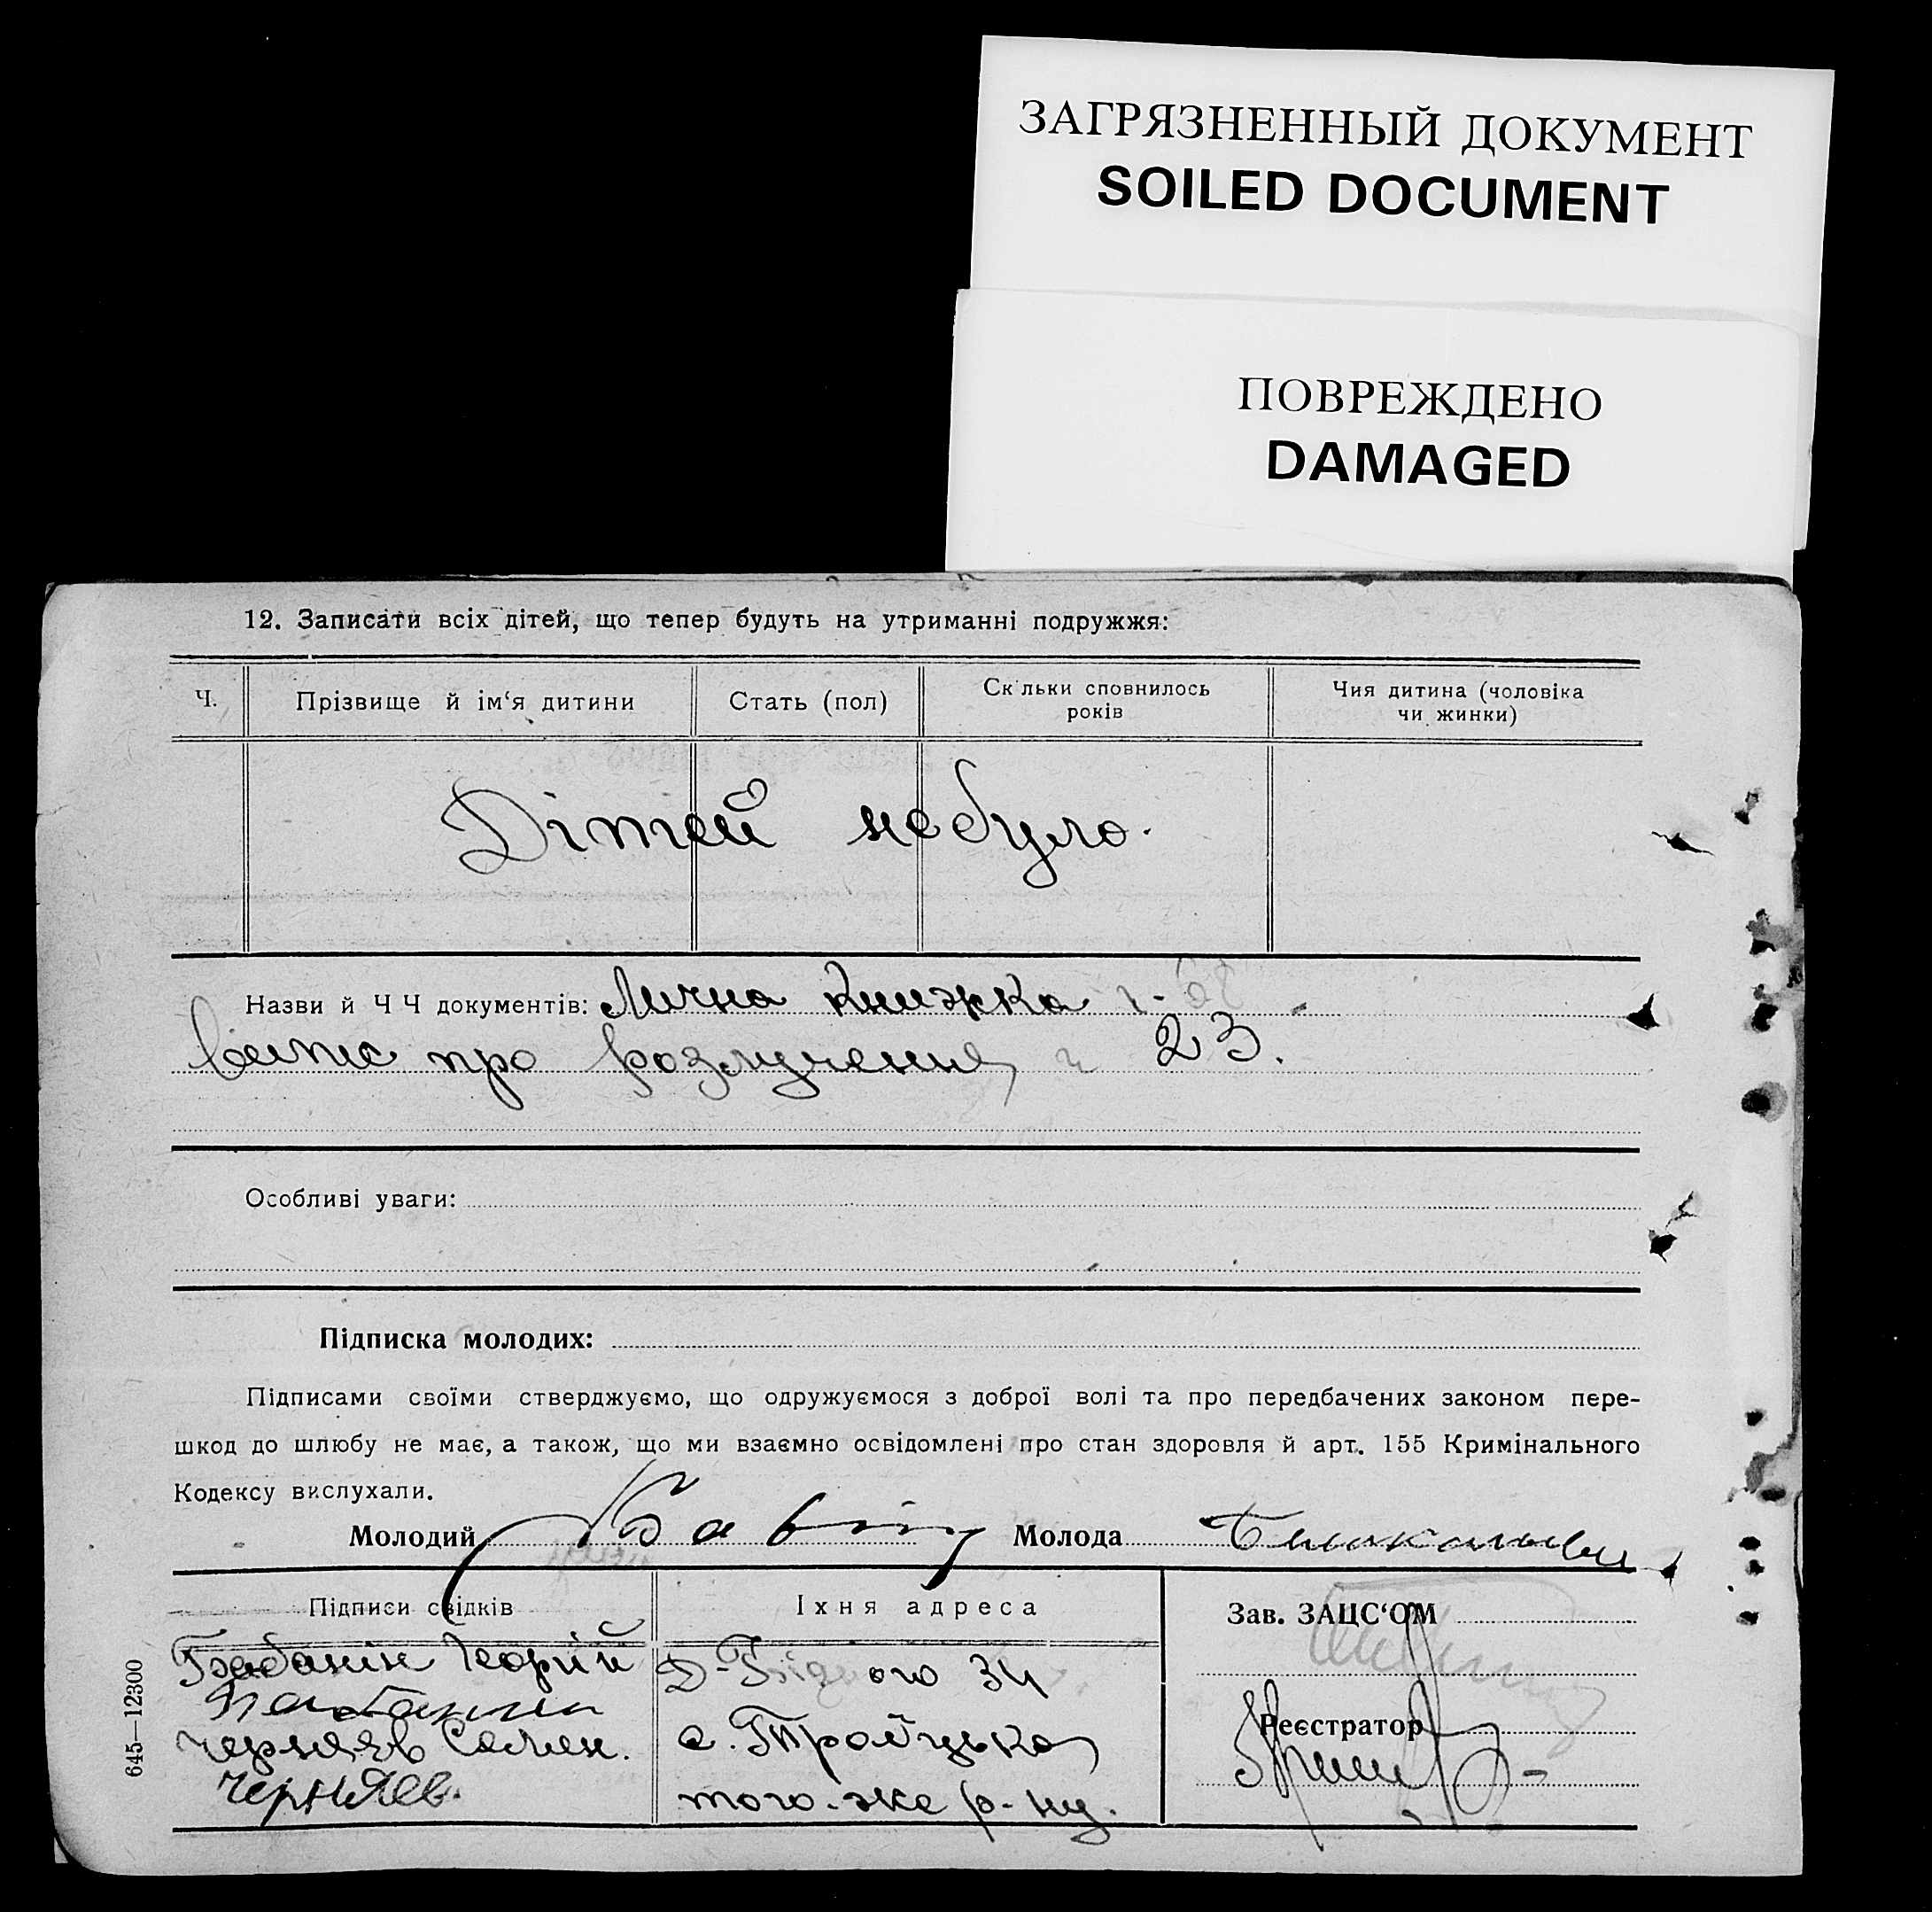 ЗАГРЯЗНЕННЫЙ ДОКУМЕНТ
SOILED DOCUMENT
ПОВРЕЖДЕНО
DAMAGED
12. Записати всіх дітей, що тепер будуть на утриманні подружжя:
Ч. Прізвище й ім‘я дитини Стать (пол) Скльки сповнилось років Чия дитина (чоловіка чи жинки)
Дітей небуло.
Назви й ЧЧ документів: Лична книжка
про розлучения 23.
Особливі уваги:
Підписка молодих:
Підписами своїми стверджуємо, що одружуємося з доброї волі та про передбачених законом пере-
шкод до шлюбу не має, а також, що ми взаємно освідомлені про стан здоровля й арт. 155 Кримінального
Кодексу вислухали.
Молодий Молода
Підписи свідків Їхня адреса Зав. ЗАЦС‘ОМ
34
Черняєв Семен. с. Троїцька Реєстратор
Черняев. того-же р-ну.
645—12300